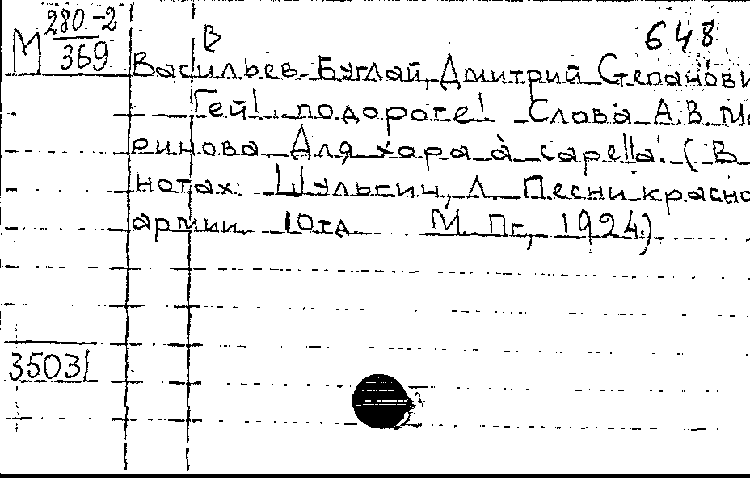 М 280-2/369
В
648
Васильев-Буглай, Дмитрий Степанови
Гей! подороге! Слова А.В. Ма
ринова Для хора à capella. (В
нотах: Шульгин, Л. Песни красно
армии. 10тд М. Пг, 1924.)
35031